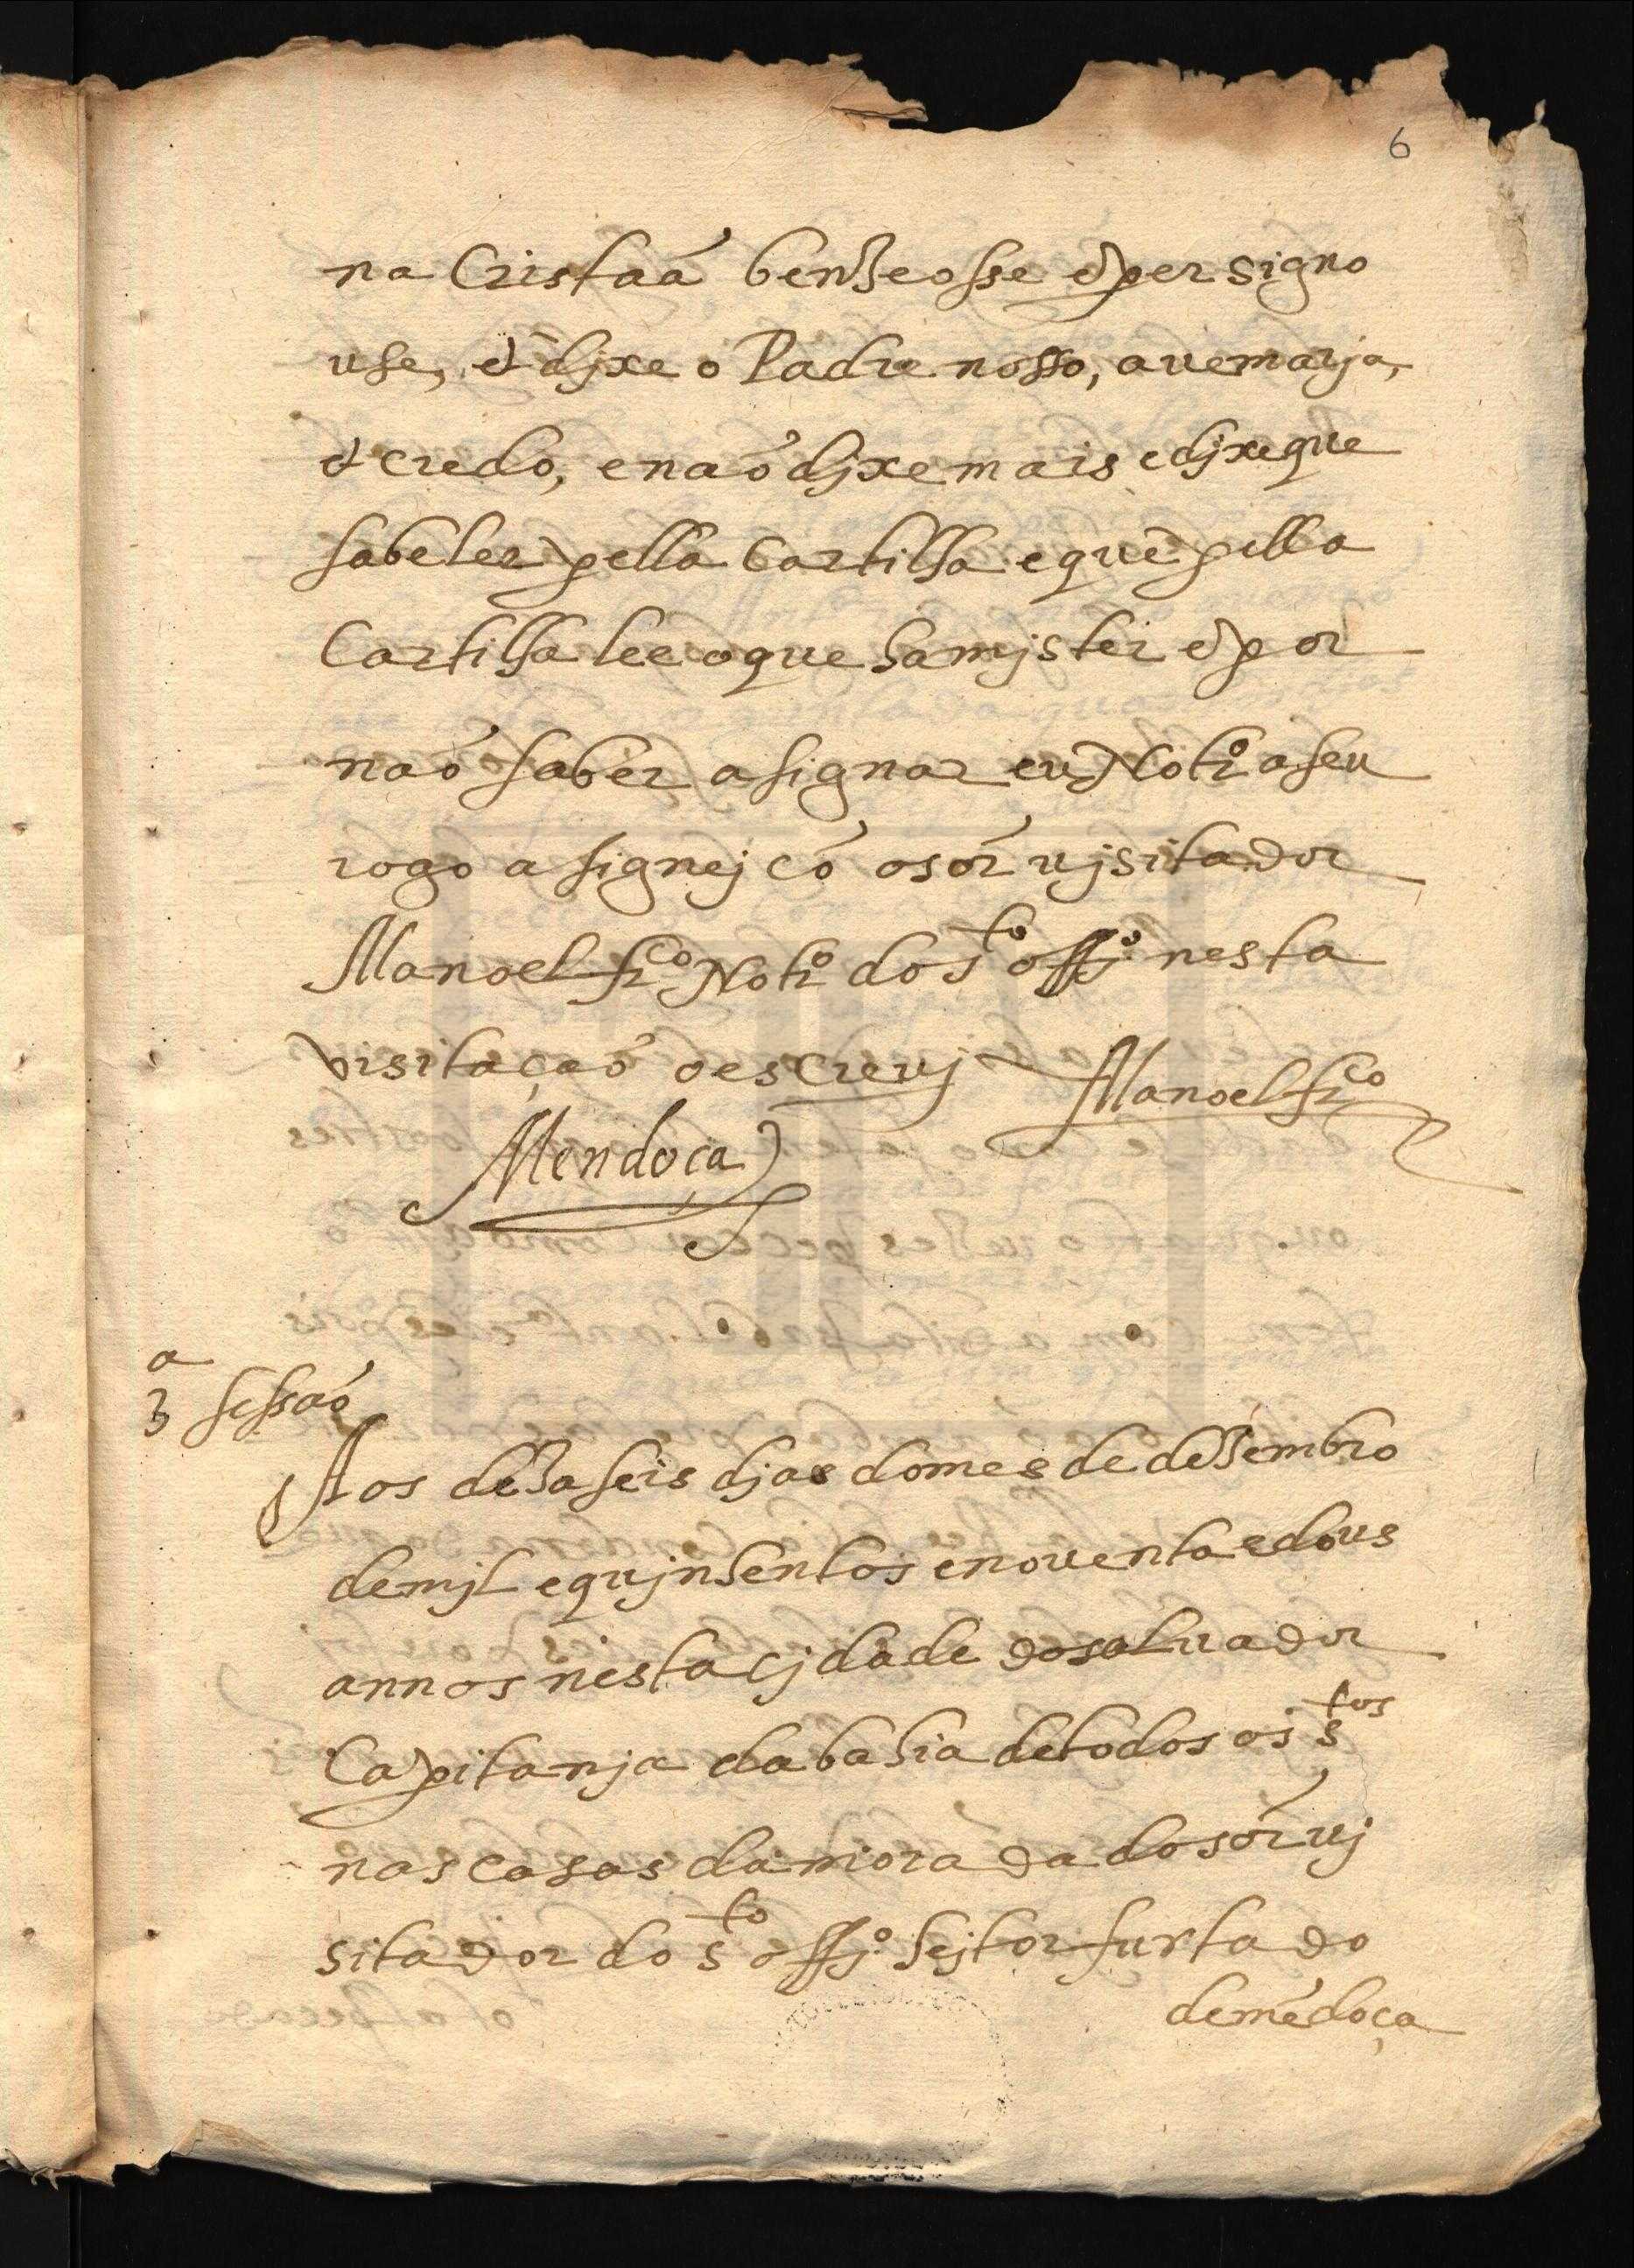 6
na Cristaã benzeosse e persigno
use, e dixe o Padre nosso, auemarja,
e credo, e naõ dixe mais e dixe que
sabe ler pella Cartilha e que pella
Cartilha lee o que ha mjster e por
naõ saber asignar eu Notro a seu
rogo asignej cõ o sor vjsitador
Manoel frco Notro do sto offjo nesta
visitaçaõ o escreuj Manoel frco
Mendoça
3a sessaõ
Aos dezaseis djas do mes de dezembro
de mjl e qujnhentos e nouenta e dous
annos nesta cjdade do saluador
Capitanja da bahia de todos os stos
nas casas da morada do sor vj
sitador do sto offjo hejtor furtado
de mẽdoça